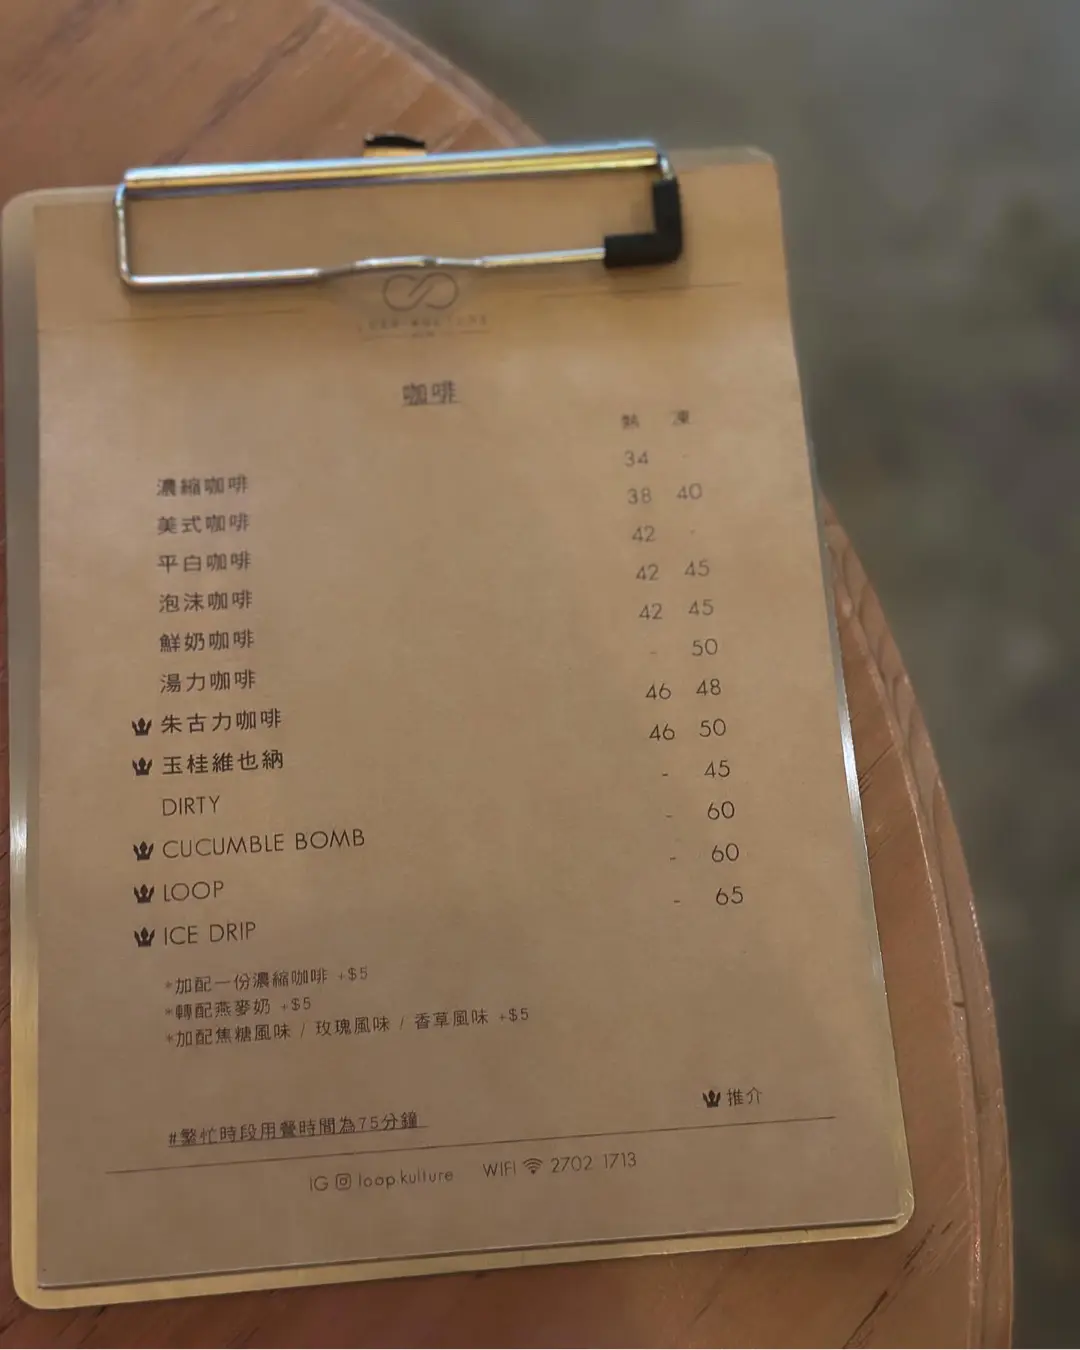 LOOP KULTURE
咖啡
熱 凍
濃縮咖啡 34 -
美式咖啡 38 40
平白咖啡 42 -
泡沫咖啡 42 45
鮮奶咖啡 42 45
湯力咖啡 - 50
朱古力咖啡 46 48
玉桂維也納 46 50
DIRTY - 45
CUCUMBLE BOMB - 60
LOOP - 60
ICE DRIP - 65
*加配一份濃縮咖啡 +$5
*轉配燕麥奶 +$5
*加配焦糖風味 / 玫瑰風味 / 香草風味 +$5
推介
#繁忙時段用餐時間為75分鐘
IG loop.kulture WIFI 2702 1713